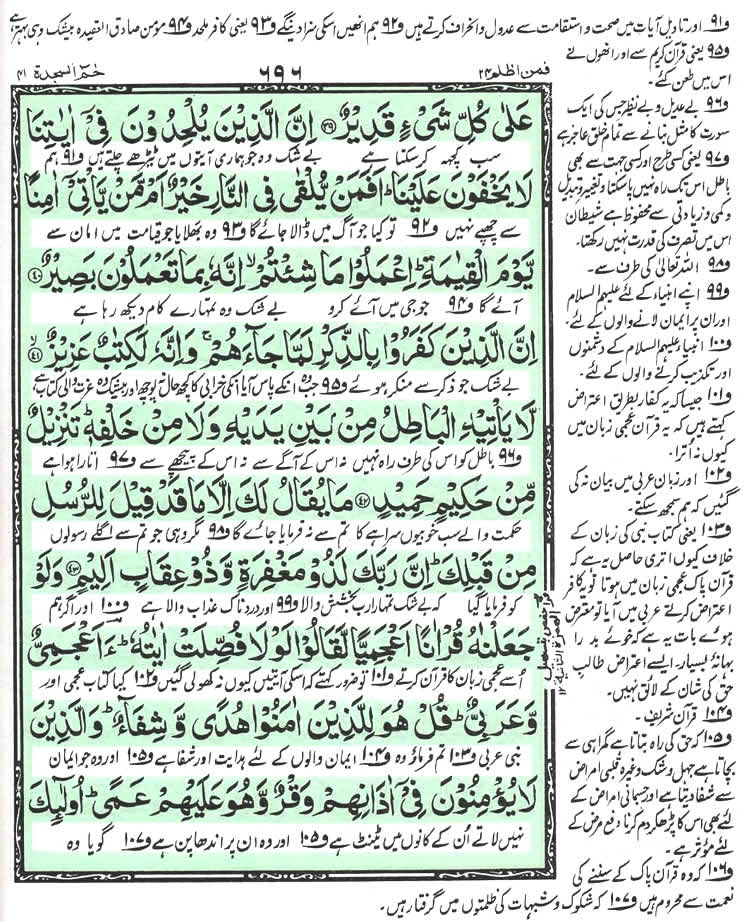 و۹۱ اور تاویل آیات میں صحت و استقامت سے عدول و انحراف کرتے ہیں و۹۲ ہم انھیں اسکی سزا دینگے و۹۳ یعنی کافر ملحد و۹۴ مؤمن صادق العقیدہ بیشک وہی بہتر ہے
فمن اظلم ۲۴
۶۹۶
حٰمٓ السجدۃ ۴۱
عَلٰى كُلِّ شَىْءٍ قَدِيْرٌ ۳۹ اِنَّ الَّذِيْنَ يُلْحِدُوْنَ فِىْۤ اٰيٰتِنَا
سب کچھ کرسکتا ہے بے شک وہ جو ہماری آیتوں میں ٹیڑھے چلتے ہیں و۹۱ ہم
لَا يَخْفَوْنَ عَلَيْنَا ؕ اَفَمَنْ يُّلْقٰى فِى النَّارِ خَيْرٌ اَمْ مَّنْ يَّاْتِىْۤ اٰمِنًا
سے چھپے نہیں و۹۲ تو کیا جو آگ میں ڈالا جائے گا و۹۳ وہ بھلا یا جو قیامت میں امان سے
يَّوْمَ الْقِيٰمَةِ ؕ اِعْمَلُوْا مَا شِئْتُمْ ۙ اِنَّهٗ بِمَا تَعْمَلُوْنَ بَصِيْرٌ ۴۰
آئے گا و۹۴ جو جی میں آئے کرو بے شک وہ تمہارے کام دیکھ رہا ہے
اِنَّ الَّذِيْنَ كَفَرُوْا بِالذِّكْرِ لَمَّا جَآءَهُمْ ۚ وَاِنَّهٗ لَكِتٰبٌ عَزِيْزٌ ۙ ۴۱
بے شک جو ذکر سے منکر ہوئے و۹۵ جب وہ انکے پاس آیا انکی خرابی کا کچھ حال نہ پوچھ اور بیشک وہ عزت والی کتاب ہے
لَّا يَاْتِيْهِ الْبَاطِلُ مِنْۢ بَيْنِ يَدَيْهِ وَلَا مِنْ خَلْفِهٖ ؕ تَنْزِيْلٌ
و۹۶ باطل کو اس کی طرف راہ نہیں نہ اس کے آگے سے نہ اس کے پیچھے سے و۹۷ اتارا ہوا ہے
مِّنْ حَكِيْمٍ حَمِيْدٍ ۴۲ مَا يُقَالُ لَكَ اِلَّا مَا قَدْ قِيْلَ لِلرُّسُلِ
حکمت والے سب خوبیوں سراہے کا تم سے نہ فرمایا جائے گا و۹۸ مگر وہی جو تم سے اگلے رسولوں
مِنْ قَبْلِكَ ؕ اِنَّ رَبَّكَ لَذُوْ مَغْفِرَةٍ وَّذُوْ عِقَابٍ اَلِيْمٍ ۴۳ وَلَوْ
کو فرمایا گیا کہ بے شک تمہارا رب بخشش والا و۹۹ اور دردناک عذاب والا ہے و۱۰۰ اور اگر ہم
جَعَلْنٰهُ قُرْاٰنًا اَعْجَمِيًّا لَّقَالُوْا لَوْلَا فُصِّلَتْ اٰيٰتُهٗ ؕ ءَاَعْجَمِىٌّ
اُسے عجمی زبان کا قرآن کرتے و۱۰۱ تو ضرور کہتے کہ اسکی آیتیں کیوں نہ کھولی گئیں و۱۰۲ کیا کتاب عجمی اور
وَّعَرَبِىٌّ ؕ قُلْ هُوَ لِلَّذِيْنَ اٰمَنُوْا هُدًى وَّشِفَآءٌ ؕ وَالَّذِيْنَ
نبی عربی و۱۰۳ تم فرماؤ وہ و۱۰۴ ایمان والوں کے لئے ہدایت اور شفا ہے و۱۰۵ اور وہ جو ایمان
لَا يُؤْمِنُوْنَ فِىْۤ اٰذَانِهِمْ وَقْرٌ وَّهُوَ عَلَيْهِمْ عَمًى ؕ اُولٰٓئِكَ
نہیں لاتے اُن کے کانوں میں ٹینٹ ہے و۱۰۵ اور وہ ان پر اندھا پن ہے و۱۰۷ گویا وہ
و۹۵ یعنی قرآن کریم سے اور انھوں نے
اس میں طعن کئے۔
و۹۶ بے عدیل و بے نظیر جس کی ایک
سورت کا مثل بنانے سے تمام خلق عاجز ہے
و۹۷ یعنی کسی طرح اور کسی جہت سے بھی
باطل اس تک راہ نہیں پاسکتا وہ تغییر و تبدیل
و کمی و زیادتی سے محفوظ ہے شیطان
اس میں تصرف کی قدرت نہیں رکھتا۔
و۹۸ اللہ تعالیٰ کی طرف سے۔
و۹۹ اپنے انبیاء کے لئے علیہم السلام
اور ان پر ایمان لانے والوں کے لئے۔
و۱۰۰ انبیا علیہم السلام کے دشمنوں
اور تکذیب کرنے والوں کے لئے۔
و۱۰۱ جیسا کہ یہ کفار بطریق اعتراض
کہتے ہیں کہ یہ قرآن عجمی زبان میں
کیوں نہ اُترا۔
و۱۰۲ اور زبان عربی میں بیان نہ کی
گئیں کہ ہم سمجھ سکتے۔
و۱۰۳ یعنی کتاب نبی کی زبان کے
خلاف کیوں اتری حاصل یہ ہے کہ
قرآن پاک عجمی زبان میں ہوتا تو یہ کافر
اعتراض کرتے عربی میں آیا تو معترض
ہوئے بات یہ ہے کہ خوئے بد را
بہانۂ بسیار۔ ایسے اعتراض طالب
حق کی شان کے لائق نہیں۔
و۱۰۴ قرآن شریف۔
و۱۰۵ کہ حق کی راہ بتاتا ہے گمراہی سے
بچاتا ہے جہل و شک وغیرہ قلبی امراض
سے شفا دیتا ہے اور جسمانی امراض کے
لئے بھی اس کا پڑھ کر دم کرنا دفع مرض کے
لئے مؤثر ہے۔
و۱۰۶ کہ وہ قرآن پاک کے سننے کی
نعمت سے محروم ہیں و۱۰۷ کہ شکوک و شبہات کی ظلمتوں میں گرفتار ہیں۔